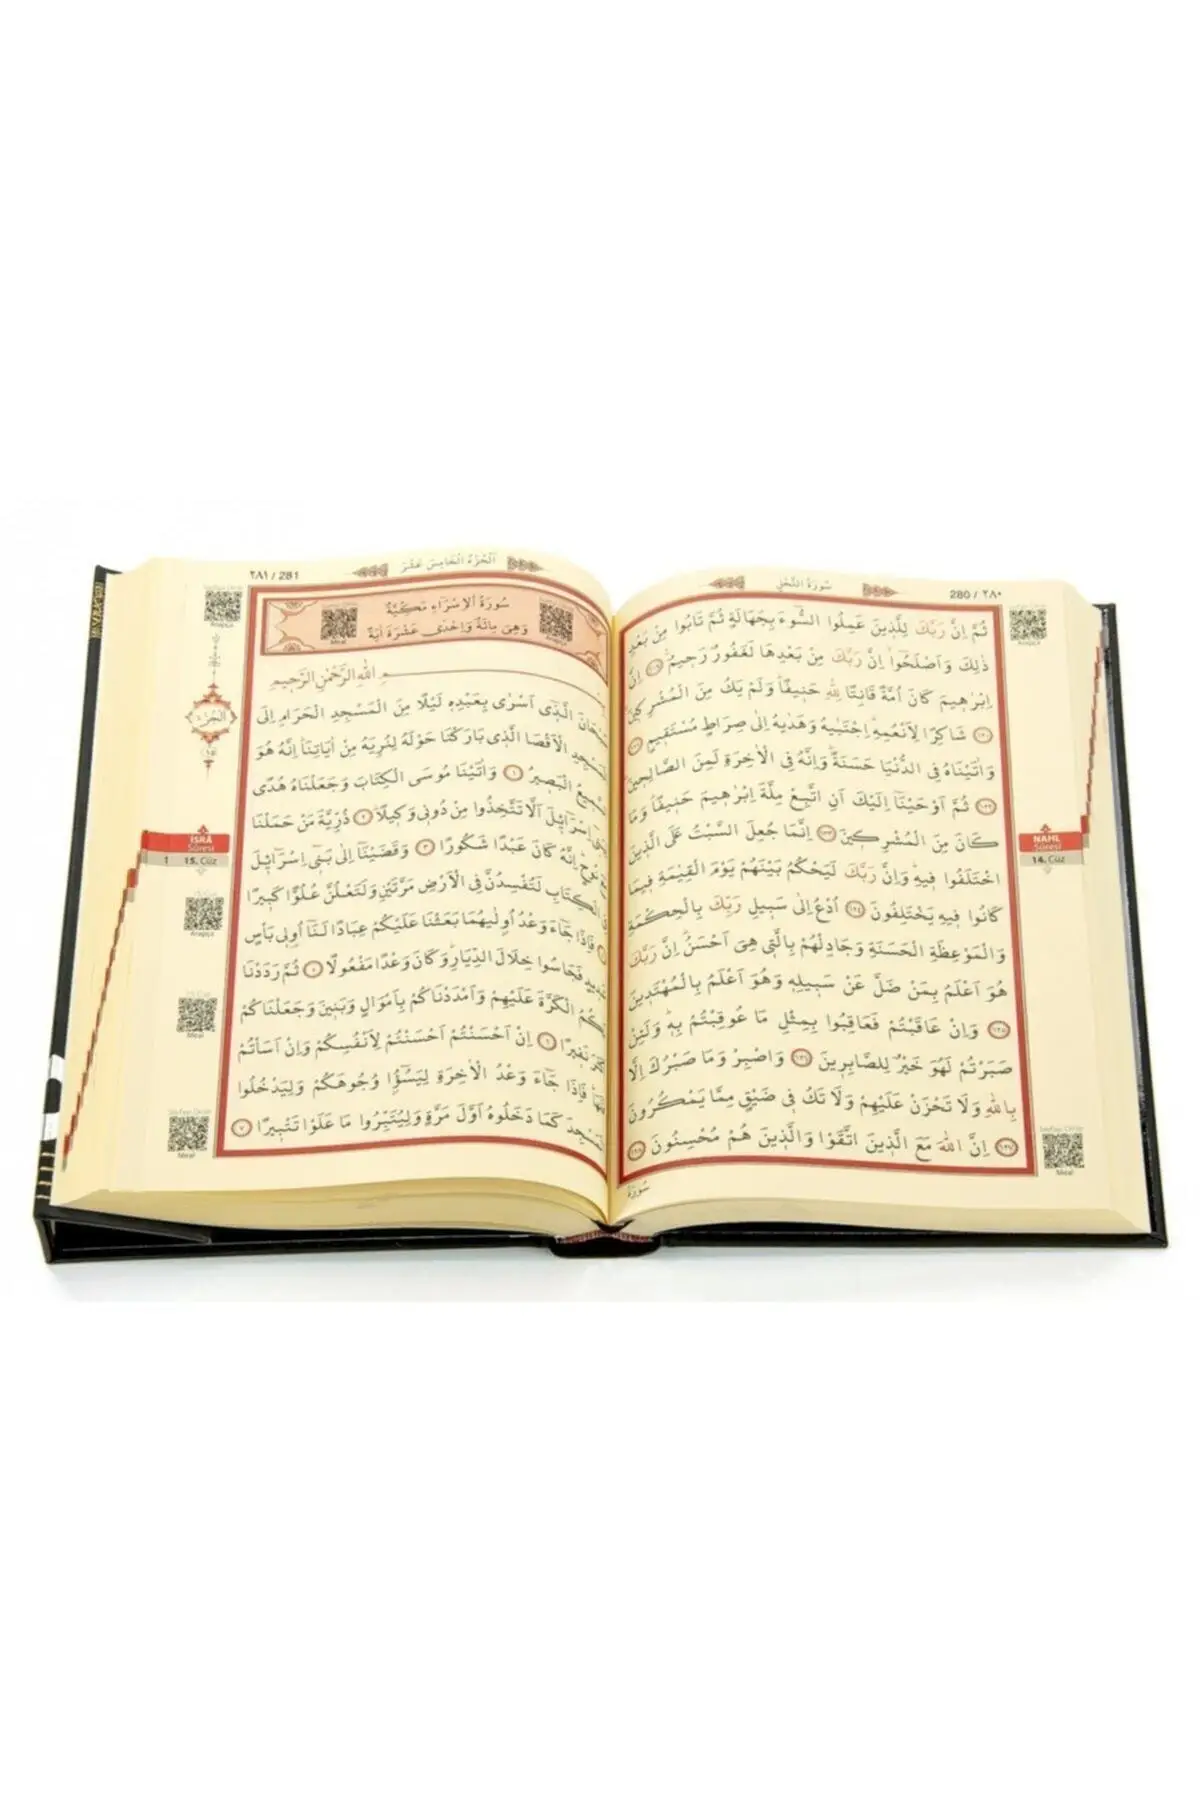 280 / ٢٨٠
سُورَةُ النَّحْلِ
ثُمَّ اِنَّ رَبَّكَ لِلَّذٖينَ عَمِلُوا السُّٓوءَ بِجَهَالَةٍ ثُمَّ تَابُوا مِنْ بَعْدِ
ذٰلِكَ وَاَصْلَحُٓوا اِنَّ رَبَّكَ مِنْ بَعْدِهَا لَغَفُورٌ رَحٖيمٌ ﴿١١٩﴾ اِنَّ
اِبْرٰهٖيمَ كَانَ اُمَّةً قَانِتًا لِلّٰهِ حَنٖيفًا وَلَمْ يَكُ مِنَ الْمُشْرِكٖينَ
﴿١٢٠﴾ شَاكِرًا لِاَنْعُمِهٖ اِجْتَبٰيهُ وَهَدٰيهُ اِلٰى صِرَاطٍ مُسْتَقٖيمٍ ﴿١٢١﴾
وَاٰتَيْنَاهُ فِي الدُّنْيَا حَسَنَةً وَاِنَّهُ فِي الْاٰخِرَةِ لَمِنَ الصَّالِحٖينَ
﴿١٢٢﴾ ثُمَّ اَوْحَيْنَٓا اِلَيْكَ اَنِ اتَّبِعْ مِلَّةَ اِبْرٰهٖيمَ حَنٖيفًا وَمَا
كَانَ مِنَ الْمُشْرِكٖينَ ﴿١٢٣﴾ اِنَّمَا جُعِلَ السَّبْتُ عَلَى الَّذٖينَ
اخْتَلَفُوا فٖيهِ وَاِنَّ رَبَّكَ لَيَحْكُمُ بَيْنَهُمْ يَوْمَ الْقِيٰمَةِ فٖيمَا
كَانُوا فٖيهِ يَخْتَلِفُونَ ﴿١٢٤﴾ اُدْعُ اِلٰى سَبٖيلِ رَبِّكَ بِالْحِكْمَةِ
وَالْمَوْعِظَةِ الْحَسَنَةِ وَجَادِلْهُمْ بِالَّتٖي هِيَ اَحْسَنُ اِنَّ رَبَّكَ
هُوَ اَعْلَمُ بِمَنْ ضَلَّ عَنْ سَبٖيلِهٖ وَهُوَ اَعْلَمُ بِالْمُهْتَدٖينَ
﴿١٢٥﴾ وَاِنْ عَاقَبْتُمْ فَعَاقِبُوا بِمِثْلِ مَا عُوقِبْتُمْ بِهٖ وَلَئِنْ
صَبَرْتُمْ لَهُوَ خَيْرٌ لِلصَّابِرٖينَ ﴿١٢٦﴾ وَاصْبِرْ وَمَا صَبْرُكَ اِلَّا
بِاللّٰهِ وَلَا تَحْزَنْ عَلَيْهِمْ وَلَا تَكُ فٖي ضَيْقٍ مِمَّا يَمْكُرُونَ
﴿١٢٧﴾ اِنَّ اللّٰهَ مَعَ الَّذٖينَ اتَّقَوْا وَالَّذٖينَ هُمْ مُحْسِنُونَ ﴿١٢٨﴾
سُورَةُ
Arapça
NAHL
Sûresi
14. Cüz
Sayfayı Dinle
Meal
اَلْجُزْءُ الْخَامِسَ عَشَرَ
٢٨١ / 281
سُورَةُ الْاِسْرَاءِ مَكِّيَّةٌ
وَهِيَ مِائَةٌ وَاِحْدٰى عَشْرَةَ اٰيَةً
Meal
اللّٰهِ الرَّحْمٰنِ الرَّحٖيمِ
الَّذٖٓي اَسْرٰى بِعَبْدِهٖ لَيْلًا مِنَ الْمَسْجِدِ الْحَرَامِ اِلَى
الْاَقْصَا الَّذٖي بَارَكْنَا حَوْلَهُ لِنُرِيَهُ مِنْ اٰيَاتِنَا اِنَّهُ هُوَ
الْبَصٖيرُ ﴿١﴾ وَاٰتَيْنَا مُوسَى الْكِتَابَ وَجَعَلْنَاهُ هُدًى
اِسْرَٓائٖلَ اَلَّا تَتَّخِذُوا مِنْ دُونٖي وَكٖيلًا ﴿٢﴾ ذُرِّيَّةَ مَنْ حَمَلْنَا
اِنَّهُ كَانَ عَبْدًا شَكُورًا ﴿٣﴾ وَقَضَيْنَٓا اِلٰى بَنٖٓي اِسْرَٓائٖلَ
الْكِتَابِ لَتُفْسِدُنَّ فِي الْاَرْضِ مَرَّتَيْنِ وَلَتَعْلُنَّ عُلُوًّا كَبٖيرًا
فَاِذَا جَٓاءَ وَعْدُ اُولٰيهُمَا بَعَثْنَا عَلَيْكُمْ عِبَادًا لَنَٓا اُولٖي بَاْسٍ
فَجَاسُوا خِلَالَ الدِّيَارِ وَكَانَ وَعْدًا مَفْعُولًا ﴿٥﴾ ثُمَّ رَدَدْنَا
الْكَرَّةَ عَلَيْهِمْ وَاَمْدَدْنَاكُمْ بِاَمْوَالٍ وَبَنٖينَ وَجَعَلْنَاكُمْ
نَفٖيرًا ﴿٦﴾ اِنْ اَحْسَنْتُمْ اَحْسَنْتُمْ لِاَنْفُسِكُمْ وَاِنْ اَسَاْتُمْ
فَاِذَا جَٓاءَ وَعْدُ الْاٰخِرَةِ لِيَسُٓؤُا وُجُوهَكُمْ وَلِيَدْخُلُوا
كَمَا دَخَلُوهُ اَوَّلَ مَرَّةٍ وَلِيُتَبِّرُوا مَا عَلَوْا تَتْبٖيرًا ﴿٧﴾
Arapça
اَلْجُزْءُ
١٥
İSRÂ
Sûresi
1 15. Cüz
Arapça
Meal
Meal